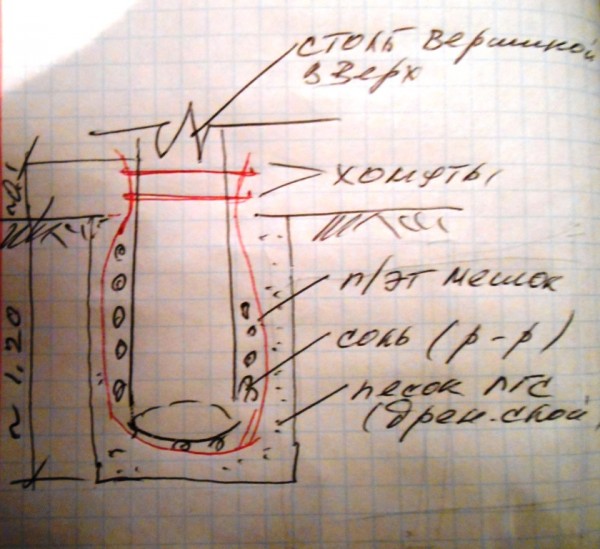 столб вершиной
вверх
хомуты
~0.1
п/эт мешок
соль (р-р)
~1.20
песок ПГС
(дрен. слой)